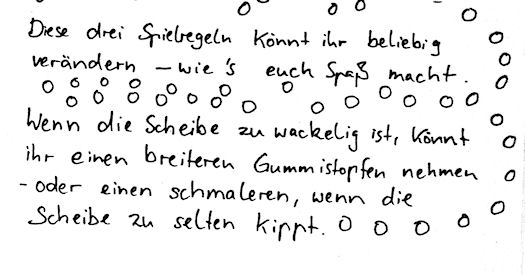 Diese drei Spielregeln könnt ihr beliebig
verändern – wie's euch Spaß macht.
Wenn die Scheibe zu wackelig ist, könnt
ihr einen breiteren Gummistopfen nehmen
- oder einen schmaleren, wenn die
Scheibe zu selten kippt.